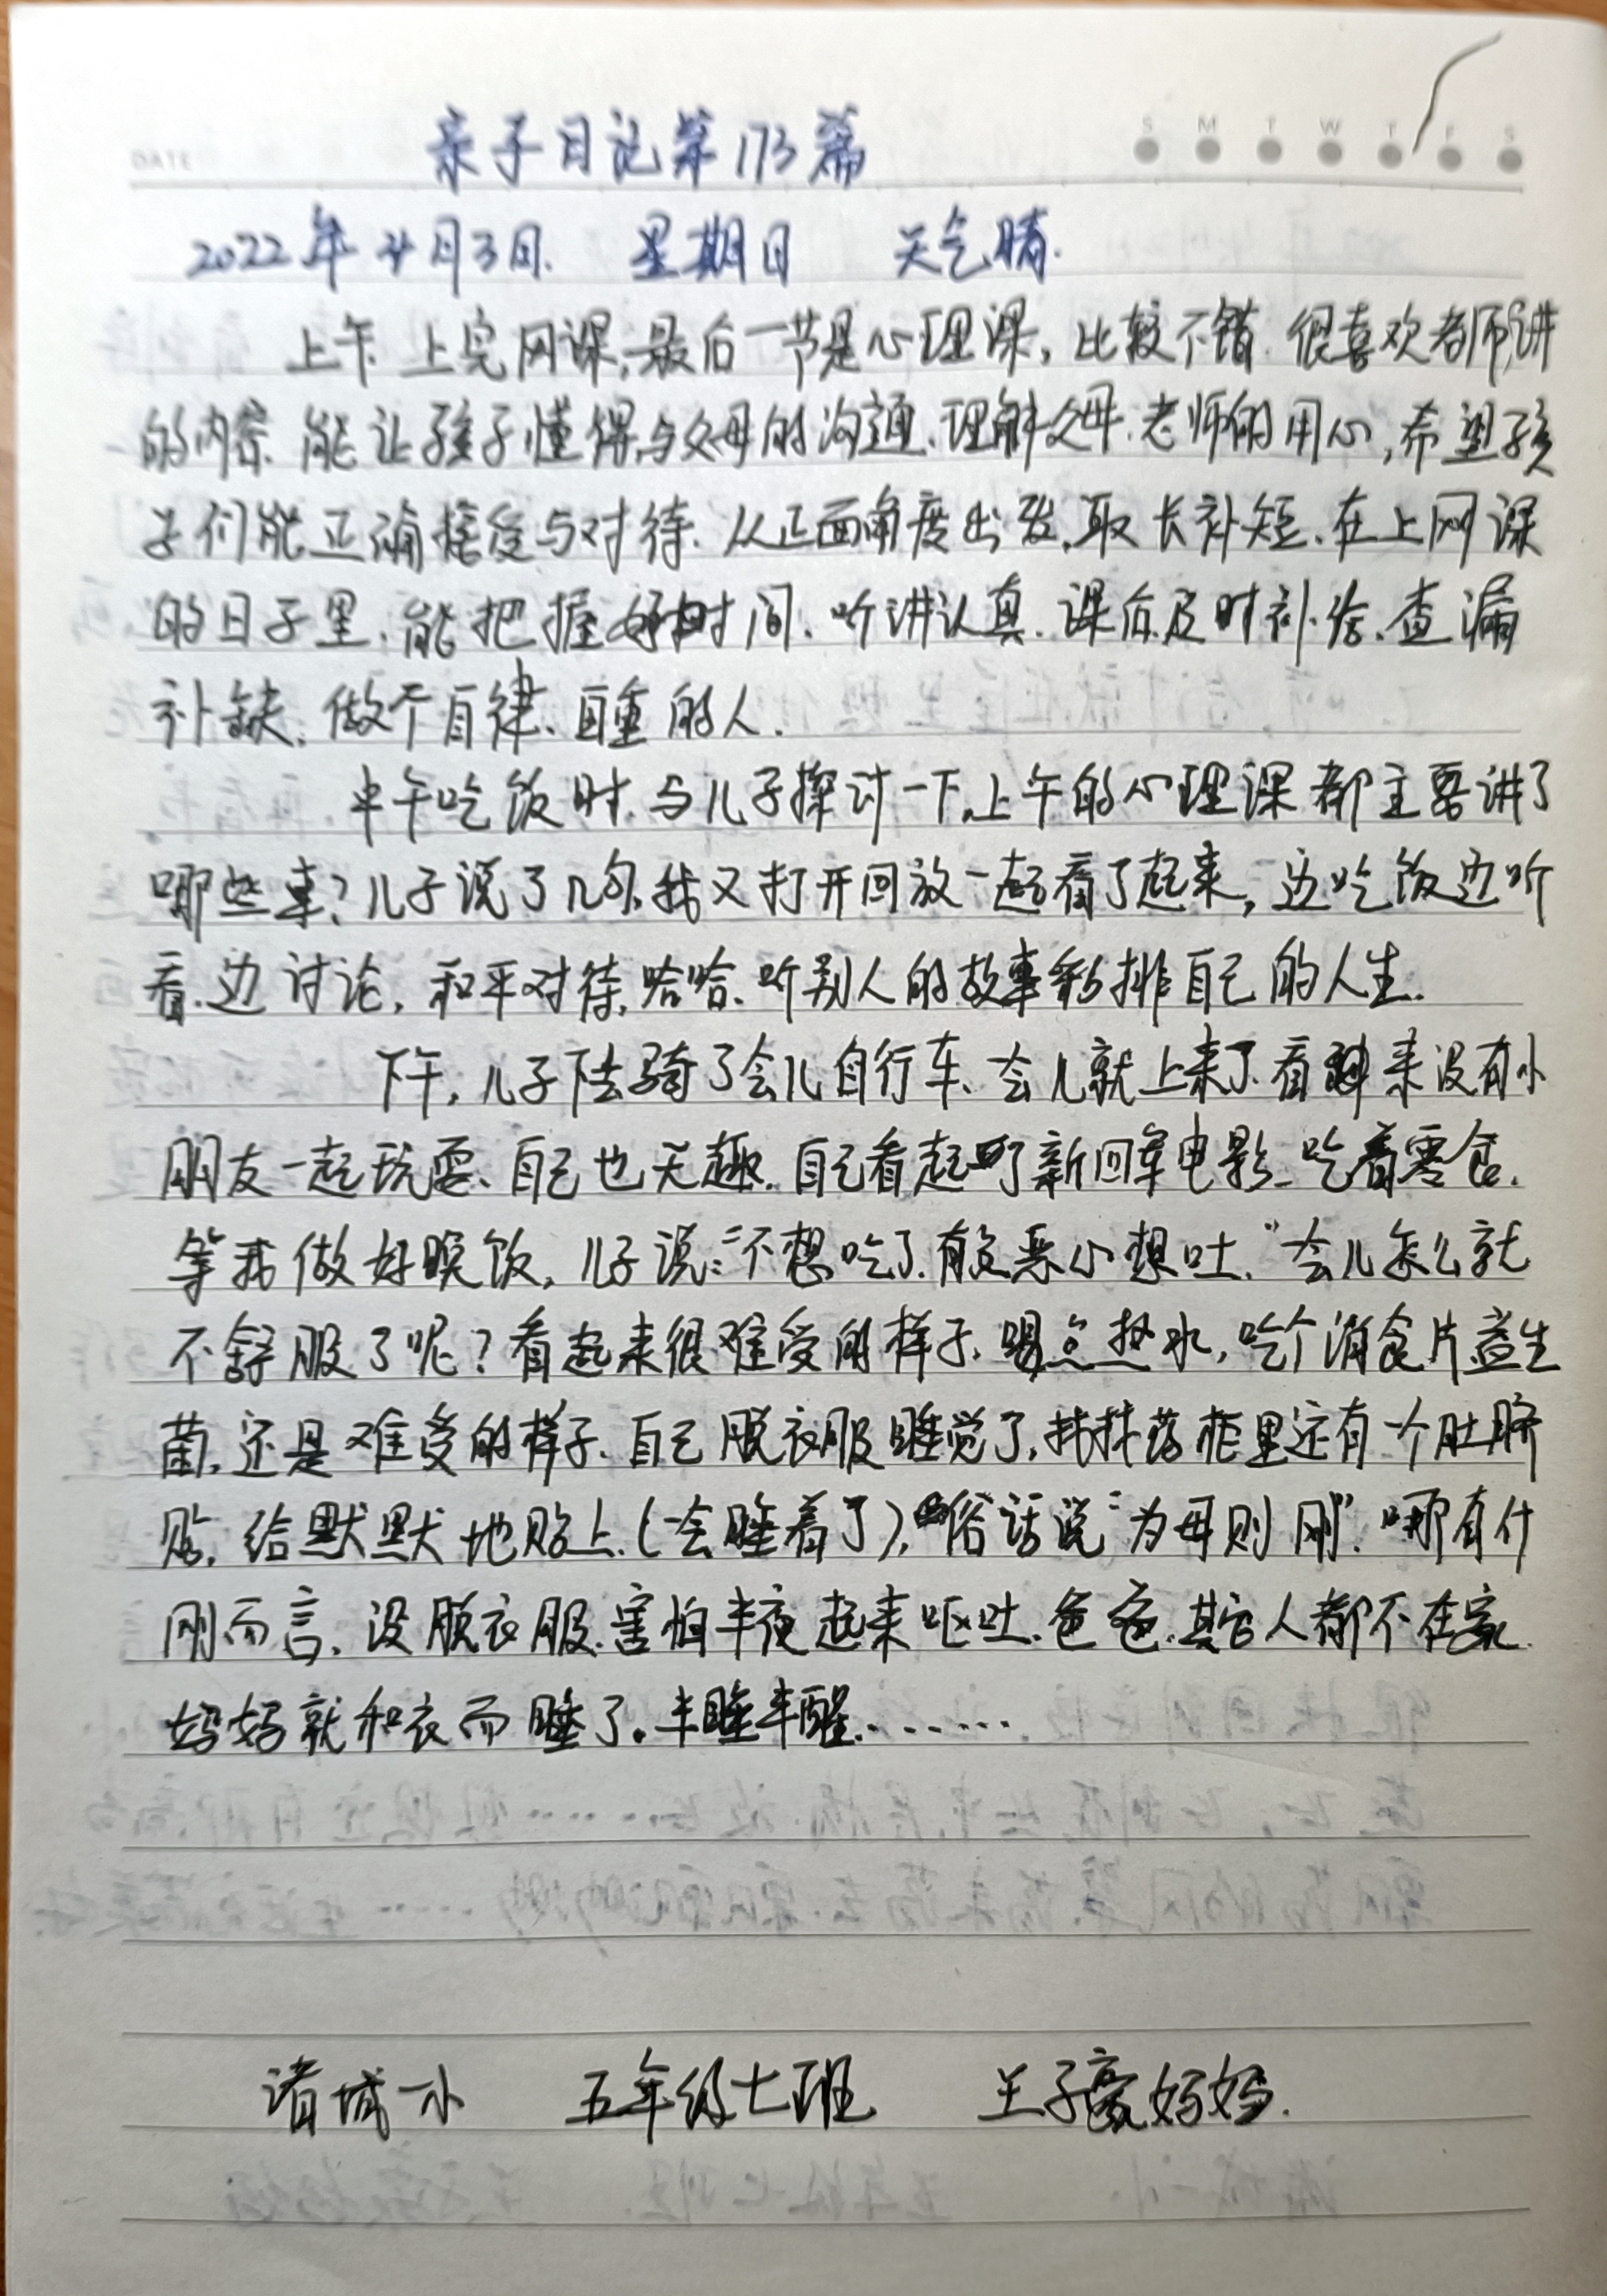 DATE
S M T W T F S
亲子日记第173篇
2022年4月3日. 星期日 天气晴.
上午上完网课,最后一节是心理课,比较不错.很喜欢老师讲
的内容.能让孩子懂得与父母的沟通、理解父母、老师的用心,希望孩
子们能正确接受与对待.从正面角度出发,取长补短.在上网课
的日子里.能把握好时间.听讲认真.课后及时补给.查漏
补缺.做个自律、自重的人.
中午吃饭时.与儿子探讨一下,上午的心理课都主要讲了
哪些事?儿子说了几句.我又打开回放一起看了起来,边吃饭边听
看.边讨论,和平对待,哈哈.听别人的故事彩排自己的人生.
下午,儿子下去骑了会儿自行车、会儿就上来了.看来没有小
朋友一起玩耍、自己也无趣.自己看起了新回军电影.吃着零食.
等我做好晚饭,儿子说:“不想吃了.有点恶心想吐.”会儿怎么就
不舒服了呢?看起来很难受的样子.喝点热水,吃个消食片益生
菌.还是难受的样子.自己脱衣服睡觉了,找找药柜里还有一个肚脐
贴,给默默地贴上.(会睡着了),俗话说“为母则刚”.哪有什
刚而言.没脱衣服.害怕半夜起来呕吐.爸爸.其它人都不在家.
妈妈就和衣而睡了。半睡半醒.......
诸城一小 五年级七班 王子豪妈妈.